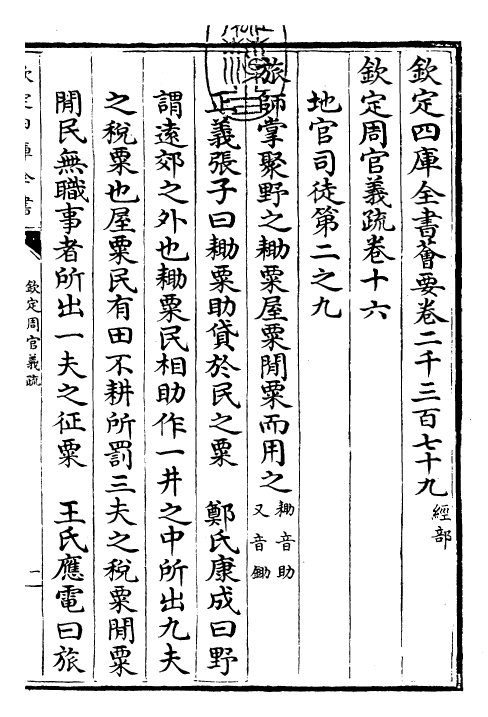 欽定四庫全書薈要卷二千三百七十九 經部
欽定周官義疏卷十六
地官司徒第二之九
旅師掌聚野之耡粟屋粟閒粟而用之 耡音助又音鋤
正義張子曰耡粟助貸於民之粟 鄭氏康成曰野
謂遠郊之外也耡粟民相助作一井之中所出九夫
之稅粟也屋粟民有田不耕所罰三夫之稅粟閒粟
閒民無職事者所出一夫之征粟 王氏應電曰旅
欽定四庫全書
欽定周官義疏